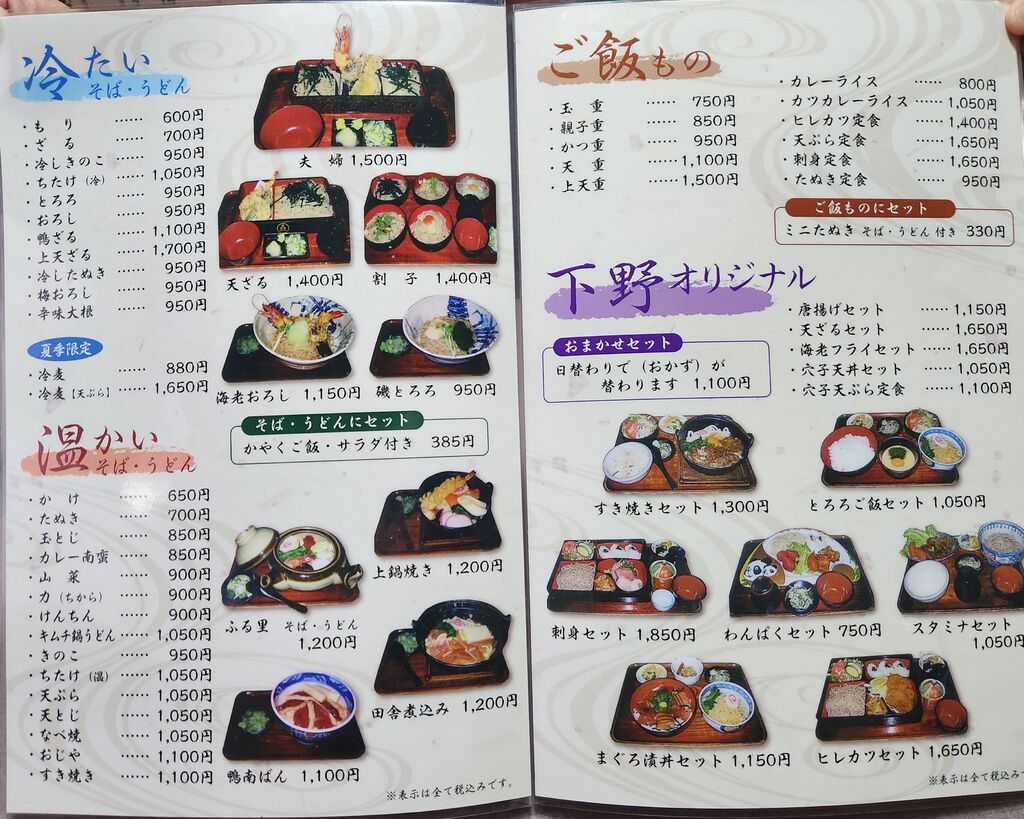 冷たい
そば・うどん
・もり …… 600円
・ざる …… 700円
・冷しきのこ …… 950円
・ちたけ（冷） …… 1,050円
・とろろ …… 950円
・おろし …… 950円
・鴨ざる …… 1,100円
・上天ざる …… 1,700円
・冷したぬき …… 950円
・梅おろし …… 950円
・辛味大根 …… 950円
夏季限定
・冷麦 …… 880円
・冷麦【天ぷら】 …… 1,650円
夫婦 1,500円
天ざる 1,400円
割子 1,400円
海老おろし 1,150円
磯とろろ 950円
そば・うどんにセット
かやくご飯・サラダ付き 385円
温かい
そば・うどん
・かけ …… 650円
・たぬき …… 700円
・玉とじ …… 850円
・カレー南蛮 …… 850円
・山菜 …… 900円
・力（ちから） …… 900円
・けんちん …… 900円
・キムチ鍋うどん …… 1,050円
・きのこ …… 950円
・ちたけ（温） …… 1,050円
・天ぷら …… 1,050円
・天とじ …… 1,050円
・なべ焼 …… 1,050円
・おじや …… 1,100円
・すき焼き …… 1,100円
上鍋焼き 1,200円
ふる里 そば・うどん
1,200円
田舎煮込み 1,200円
鴨南ばん 1,100円
※表示は全て税込みです。
ご飯もの
・玉重 …… 750円
・親子重 …… 850円
・かつ重 …… 950円
・天重 …… 1,100円
・上天重 …… 1,500円
・カレーライス …… 800円
・カツカレーライス …… 1,050円
・ヒレカツ定食 …… 1,400円
・天ぷら定食 …… 1,650円
・刺身定食 …… 1,650円
・たぬき定食 …… 950円
ご飯ものにセット
ミニたぬき そば・うどん 付き 330円
下野オリジナル
おまかせセット
日替わりで（おかず）が
替わります 1,100円
・唐揚げセット …… 1,150円
・天ざるセット …… 1,650円
・海老フライセット …… 1,650円
・穴子天丼セット …… 1,050円
・穴子天ぷら定食 …… 1,100円
すき焼きセット 1,300円
とろろご飯セット 1,050円
刺身セット 1,850円
わんぱくセット 750円
スタミナセット
1,050円
まぐろ漬丼セット 1,150円
ヒレカツセット 1,650円
※表示は全て税込みで